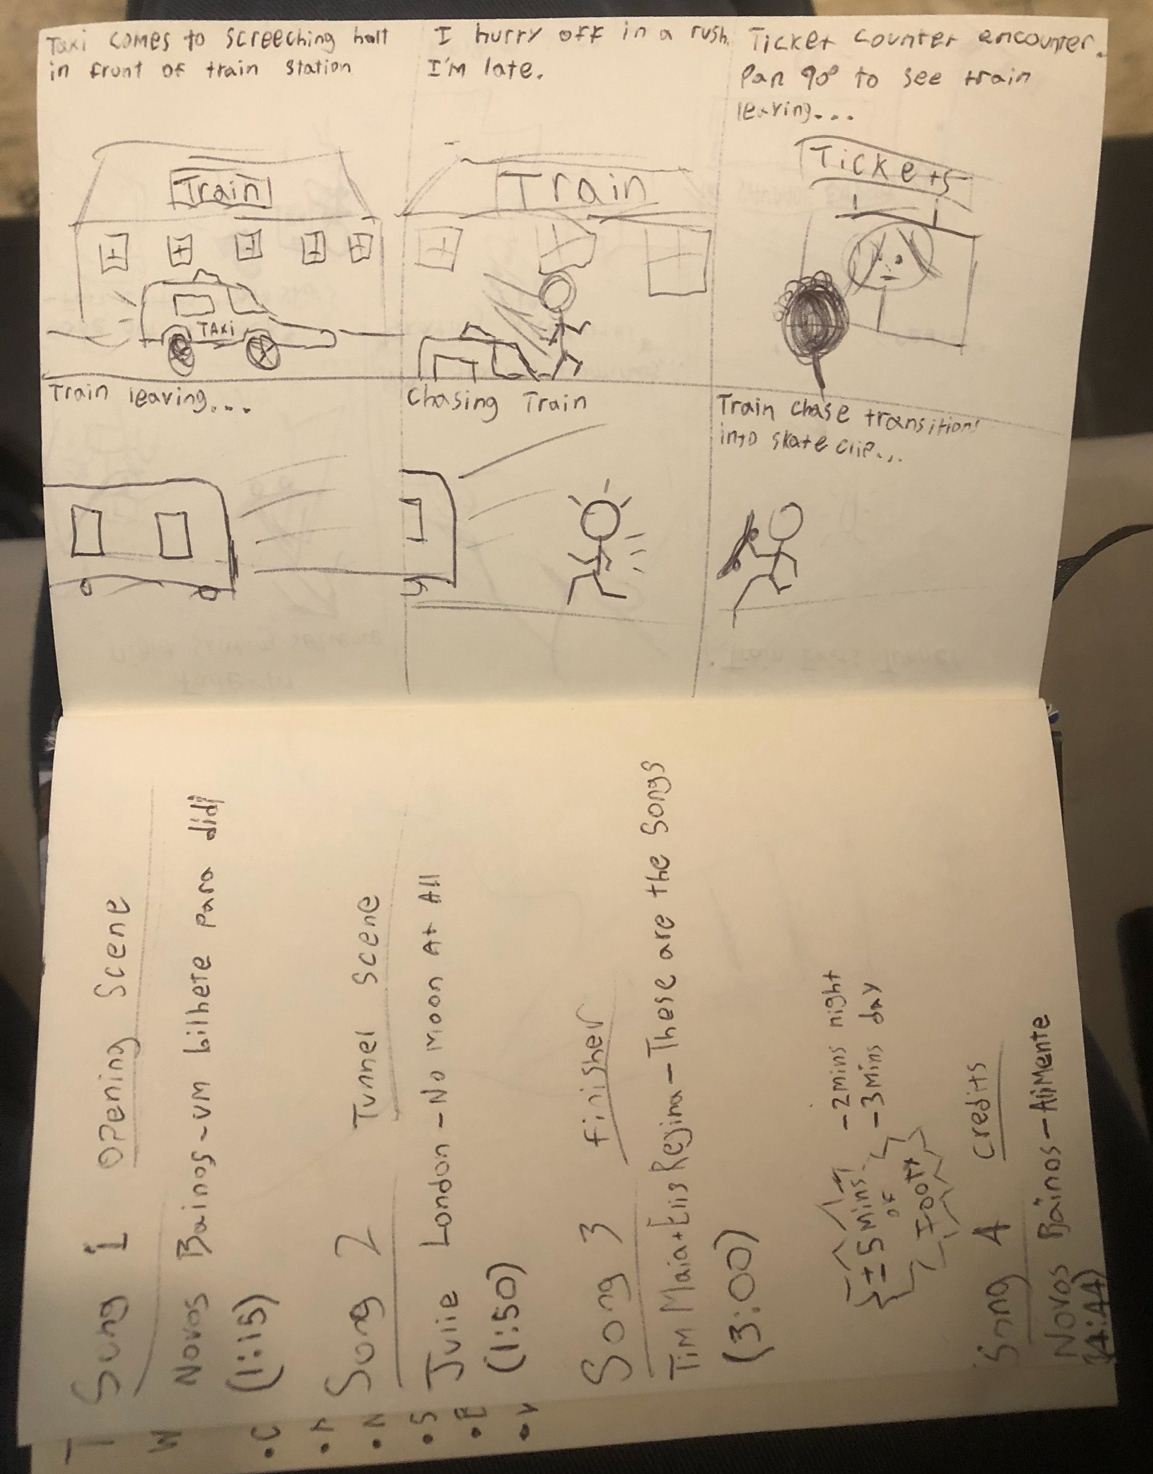 Taxi comes to screeching halt
in front of train station
I hurry off in a rush,
I'm late.
Ticket counter encounter.
Pan 90° to see train
leaving...
Train
TAXi
Train
Tickets
Train leaving...
Chasing Train
Train chase transitions
into skate clip...
Song 1 opening scene
Novos Bainos - um bilhete para didi
(1:15)
Song 2 Tunnel scene
Julie London - No Moon At All
(1:50)
Song 3 finisher
Tim Maia + Elis Regina - These are the songs
(3:00)
± 5 mins
of
Foot
- 2mins night
- 3Mins day
Song 4 credits
Novos Bainos - AliMente
(4:44)